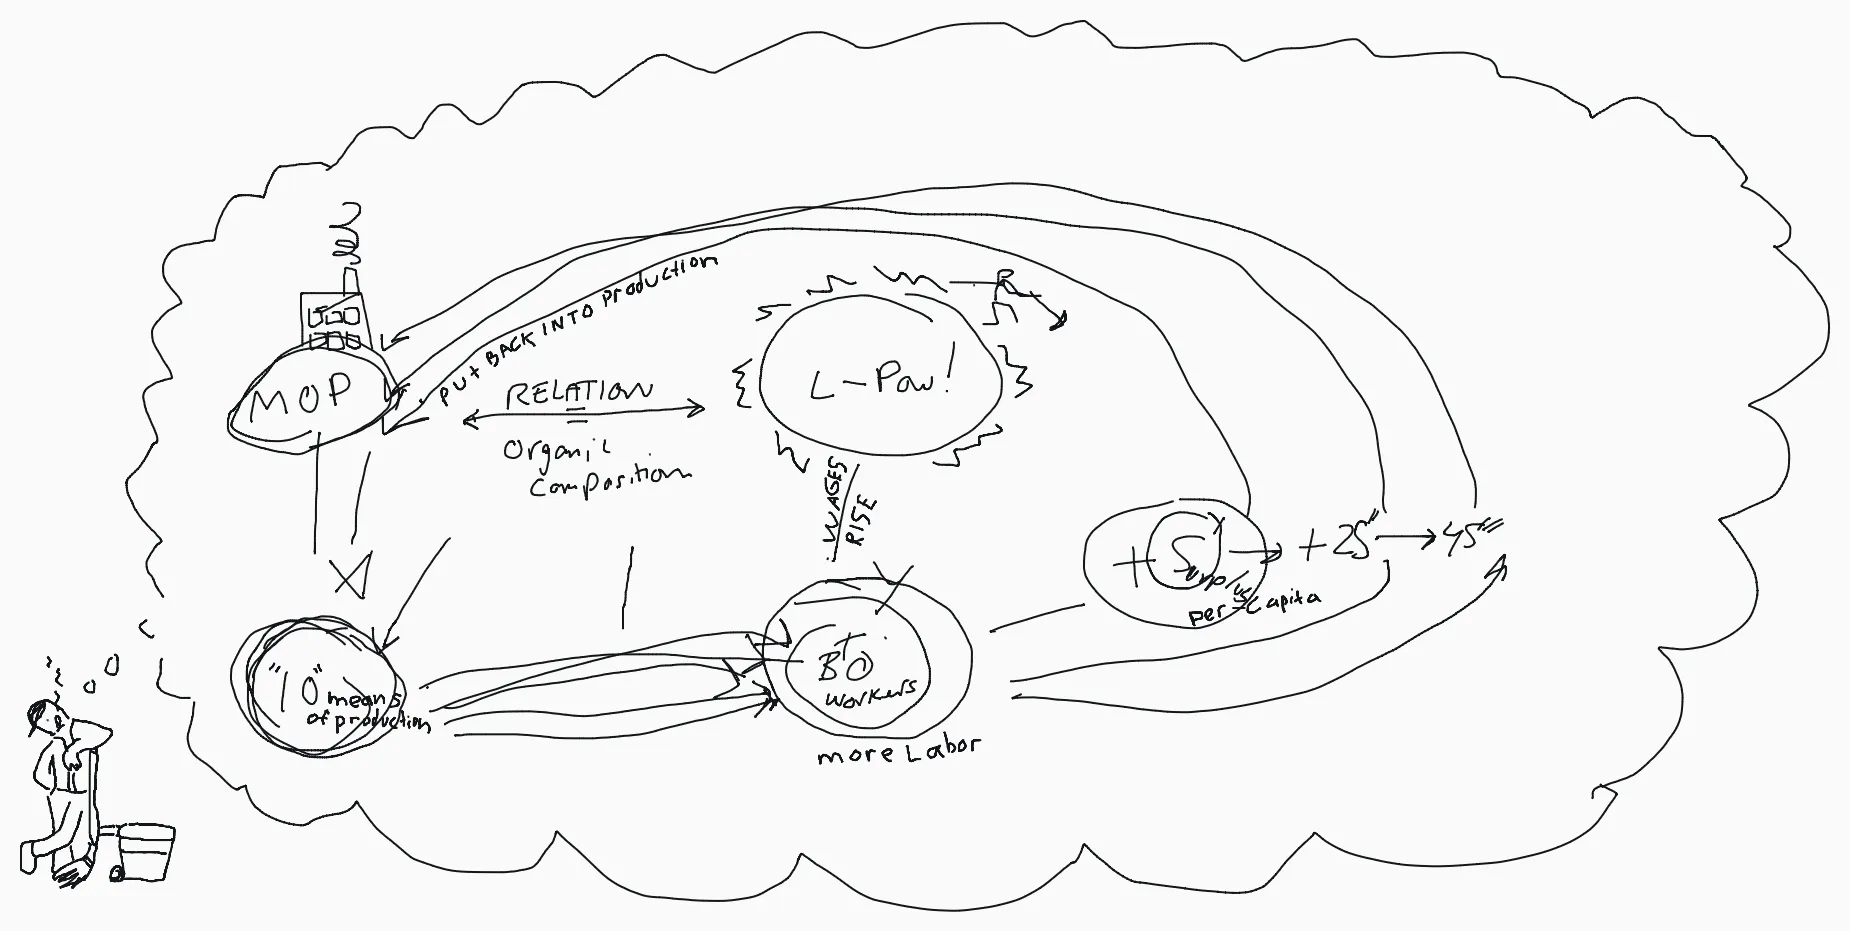 PUT BACK INTO Production
MOP
RELATION
Organic
Composition
L-Pow!
WAGES
RISE
+ S
Surplus
per-Capita
+ 2S
4S
"10" means
of production
workers
more Labor